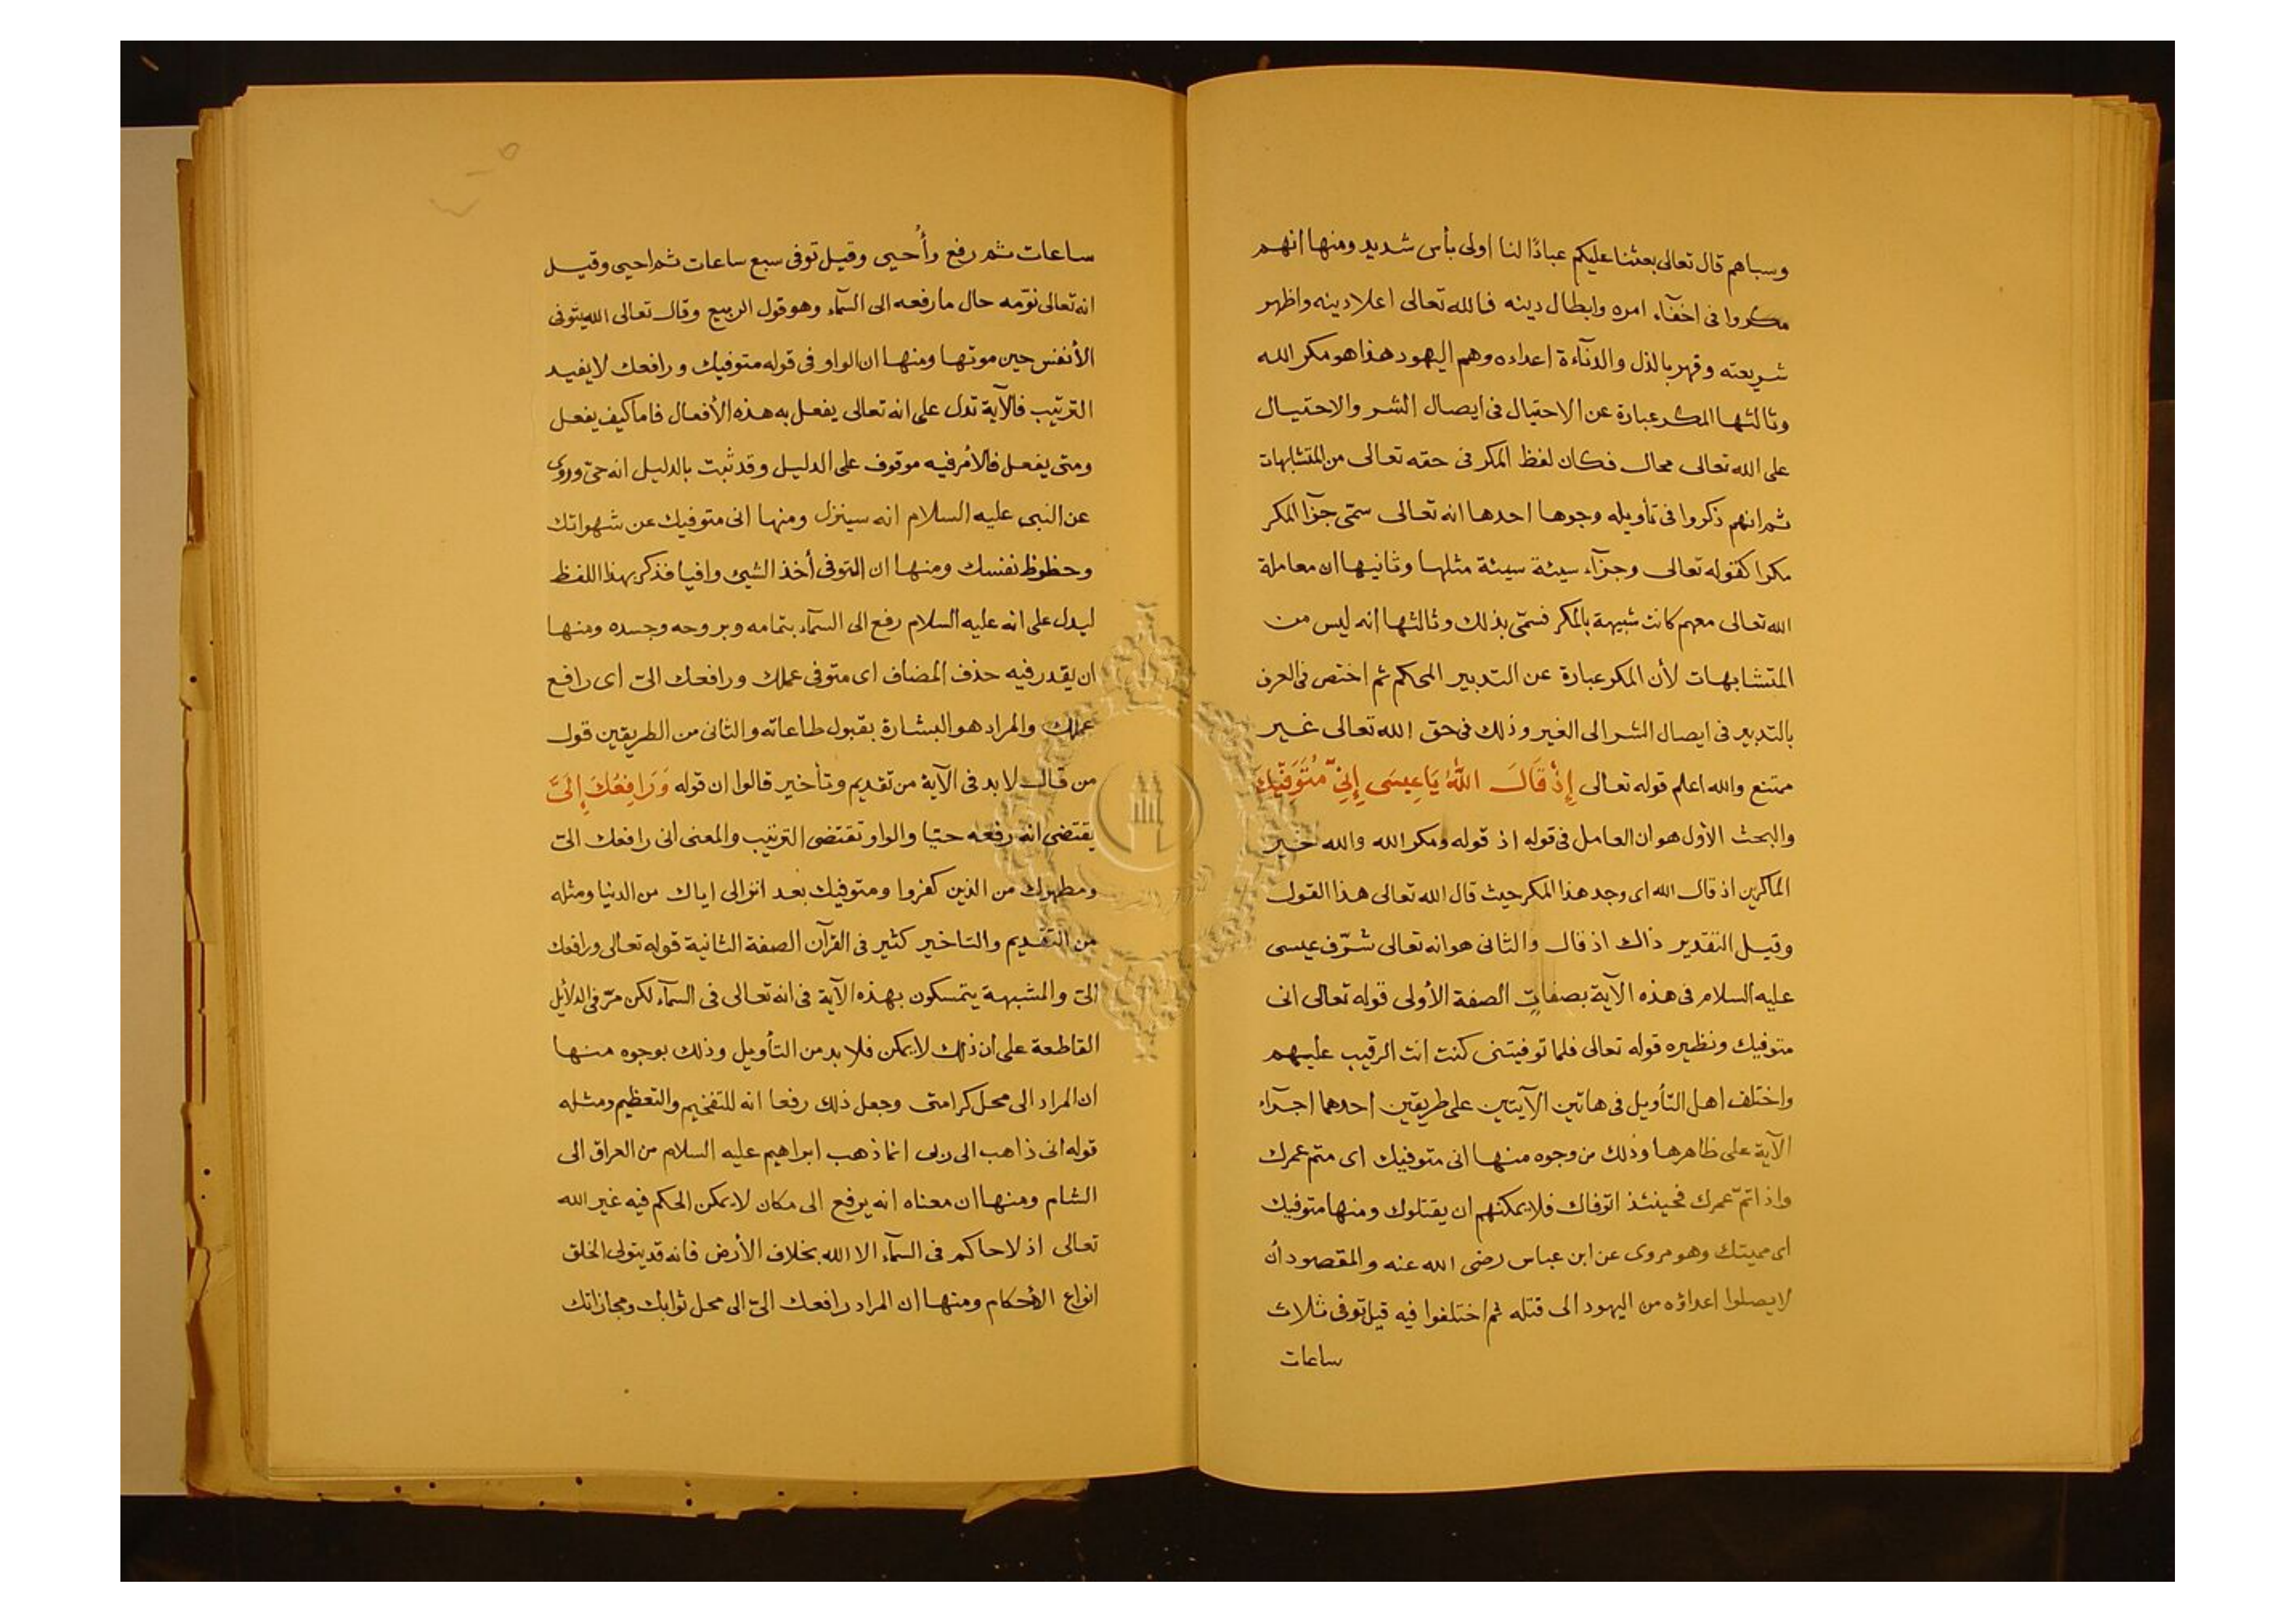 وسباهم قال تعالى بعثنا عليكم عبادًا لنا اولى بأس شديد ومنها انهم
مكروا فى اخفآء امره وابطال دينه فالله تعالى اعلا دينه واظهر
شريعته وقهر بالذل والدنآءة اعداءه وهم اليهود هذا هو مكر الله
وثالثها المكر عبارة عن الاحتيال فى ايصال الشر والاحتيال
على الله تعالى محال فكان لفظ المكر فى حقه تعالى من المتشابهات
ثم انهم ذكروا فى تأويله وجوها احدها انه تعالى سمّى جزآ المكر
مكرا كقوله تعالى وجزآء سيئة سيئة مثلها وثانيها ان معاملة
الله تعالى معهم كانت شبيهة بالمكر فسمّى بذلك وثالثها انه ليس من
المتشابهات لأن المكر عبارة عن التدبير المحكم ثم اختص فى العرف
بالتدبير فى ايصال الشر الى الغير وذلك فى حق الله تعالى غير
ممتنع والله اعلم قوله تعالى إِذْ قَالَ اللَّهُ يَا عِيسَى إِنِّي مُتَوَفِّيكَ
والبحث الأول هو ان العامل فى قوله اذ قوله ومكر الله والله خير
الماكرين اذ قال الله اى وجد هذا المكر حيث قال الله تعالى هذا القول
وقيل التقدير ذاك اذ قال والثانى هو انه تعالى شرّف عيسى
عليه السلام فى هذه الآية بصفاتٍ الصفة الأولى قوله تعالى انى
متوفيك ونظيره قوله تعالى فلما توفيتنى كنت انت الرقيب عليهم
واختلف اهل التأويل فى هاتين الآيتين على طريقين احدهما اجرآء
الآية على ظاهرها وذلك من وجوه منها انى متوفيك اى متم عمرك
واذا تمّ عمرك فحينئذ اتوفاك فلا يمكنهم ان يقتلوك ومنها متوفيك
اى مميتك وهو مروى عن ابن عباس رضى الله عنه والمقصود أن
لا يصلوا اعداؤه من اليهود الى قتله ثم اختلفوا فيه قيل توفى ثلاث
ساعات
ساعات ثم رفع وأُحيى وقيل توفى سبع ساعات ثم احيى وقيل
انه تعالى نوّمه حال ما رفعه الى السمآء وهو قول الربيع وقال تعالى الله يتوفى
الأنفس حين موتها ومنها ان الواو فى قوله متوفيك ورافعك لا يفيد
الترتيب فالآية تدل على انه تعالى يفعل به هذه الأفعال فاما كيف يفعل
ومتى يفعل فالأمر فيه موقوف على الدليل وقد ثبت بالدليل انه حىّ وروى
عن النبى عليه السلام انه سينزل ومنها انى متوفيك عن شهواتك
وحظوظ نفسك ومنها ان التوفى أخذ الشيئ وافيا فذكر بهذا اللفظ
ليدل على انه عليه السلام رفع الى السمآء بتمامه وبروحه وجسده ومنها
ان يقدر فيه حذف المضاف اى متوفى عملك ورافعك الىّ اى رافع
عملك والمراد هو البشارة بقبول طاعاته والثانى من الطريقين قول
من قال لا بد فى الآية من تقديم وتأخير قالوا ان قوله وَرَافِعُكَ إِلَىَّ
يقتضى انه رفعه حيّا والواو تقتضى الترتيب والمعنى انى رافعك الىّ
ومطهرك من الذين كفروا ومتوفيك بعد انزالى اياك من الدنيا ومثله
من التقديم والتاخير كثير فى القرآن الصفة الثانية قوله تعالى ورافعك
الىّ والمشبهة يتمسكون بهذه الآية فى انه تعالى فى السمآء لكن مرّ فى الدلآئل
القاطعة على ان ذلك لا يمكن فلا بد من التأويل وذلك بوجوه منها
ان المراد الى محل كرامتى وجعل ذلك رفعا انه للتفخيم والتعظيم ومثله
قوله انى ذاهب الى ربى انما ذهب ابراهيم عليه السلام من العراق الى
الشام ومنها ان معناه انه يرفع الى مكان لا يمكن الحكم فيه غير الله
تعالى اذ لا حاكم فى السمآء الا الله بخلاف الأرض فانه قد يتولى الخلق
انواع الأحكام ومنها ان المراد رافعك الىّ الى محل ثوابك ومجازاتك